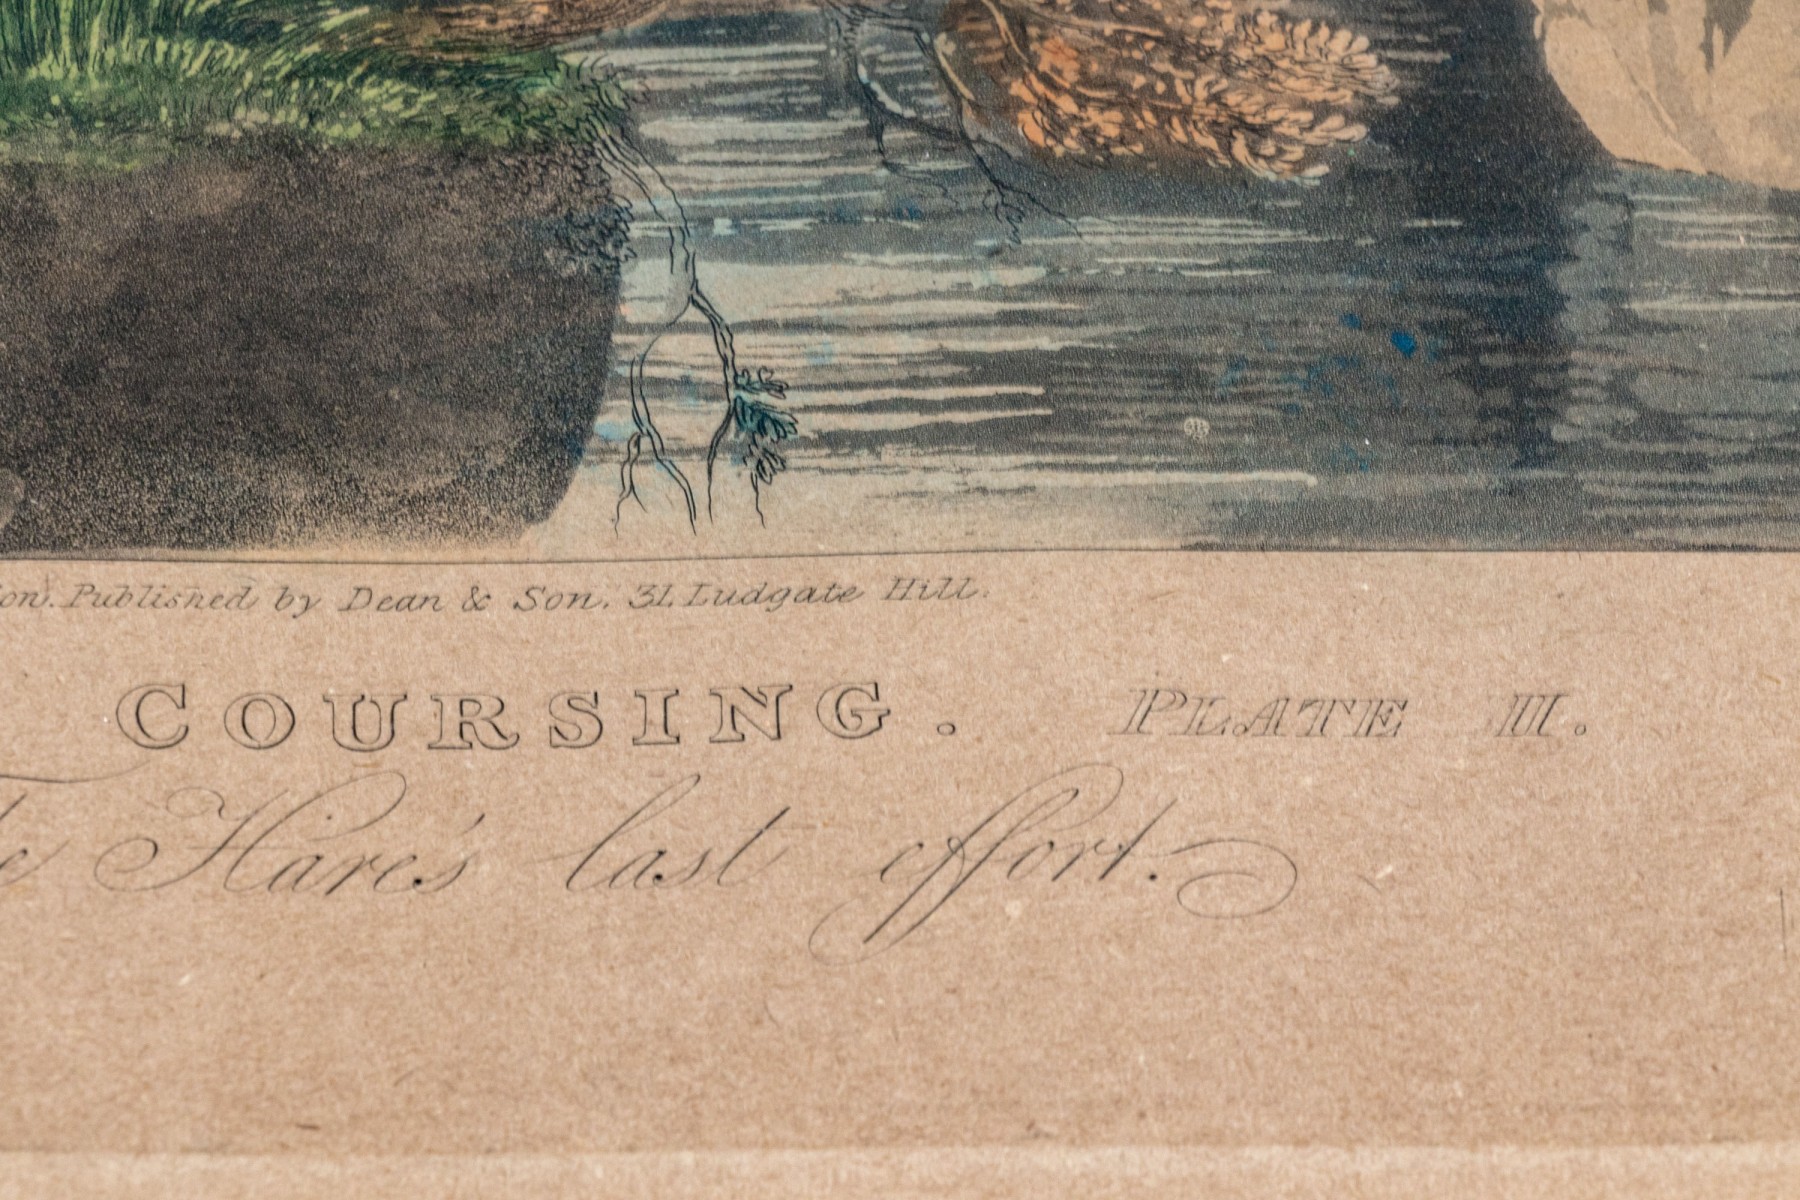 Published by Dean & Son. 31. Ludgate Hill.
COURSING. PLATE III.
Hare's last effort.